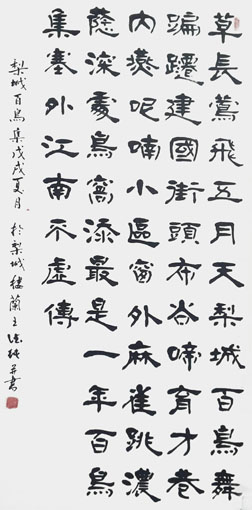 草長鶯飛五月天梨城百鳥舞
蹁躚建國街頭布谷啼育才巷
内燕呢喃小區窗外麻雀跳濃
蔭深處鳥窩添最是一年百鳥
集塞外江南不虛傳
梨城百鳥集戊戌夏月於梨城樓蘭王并書